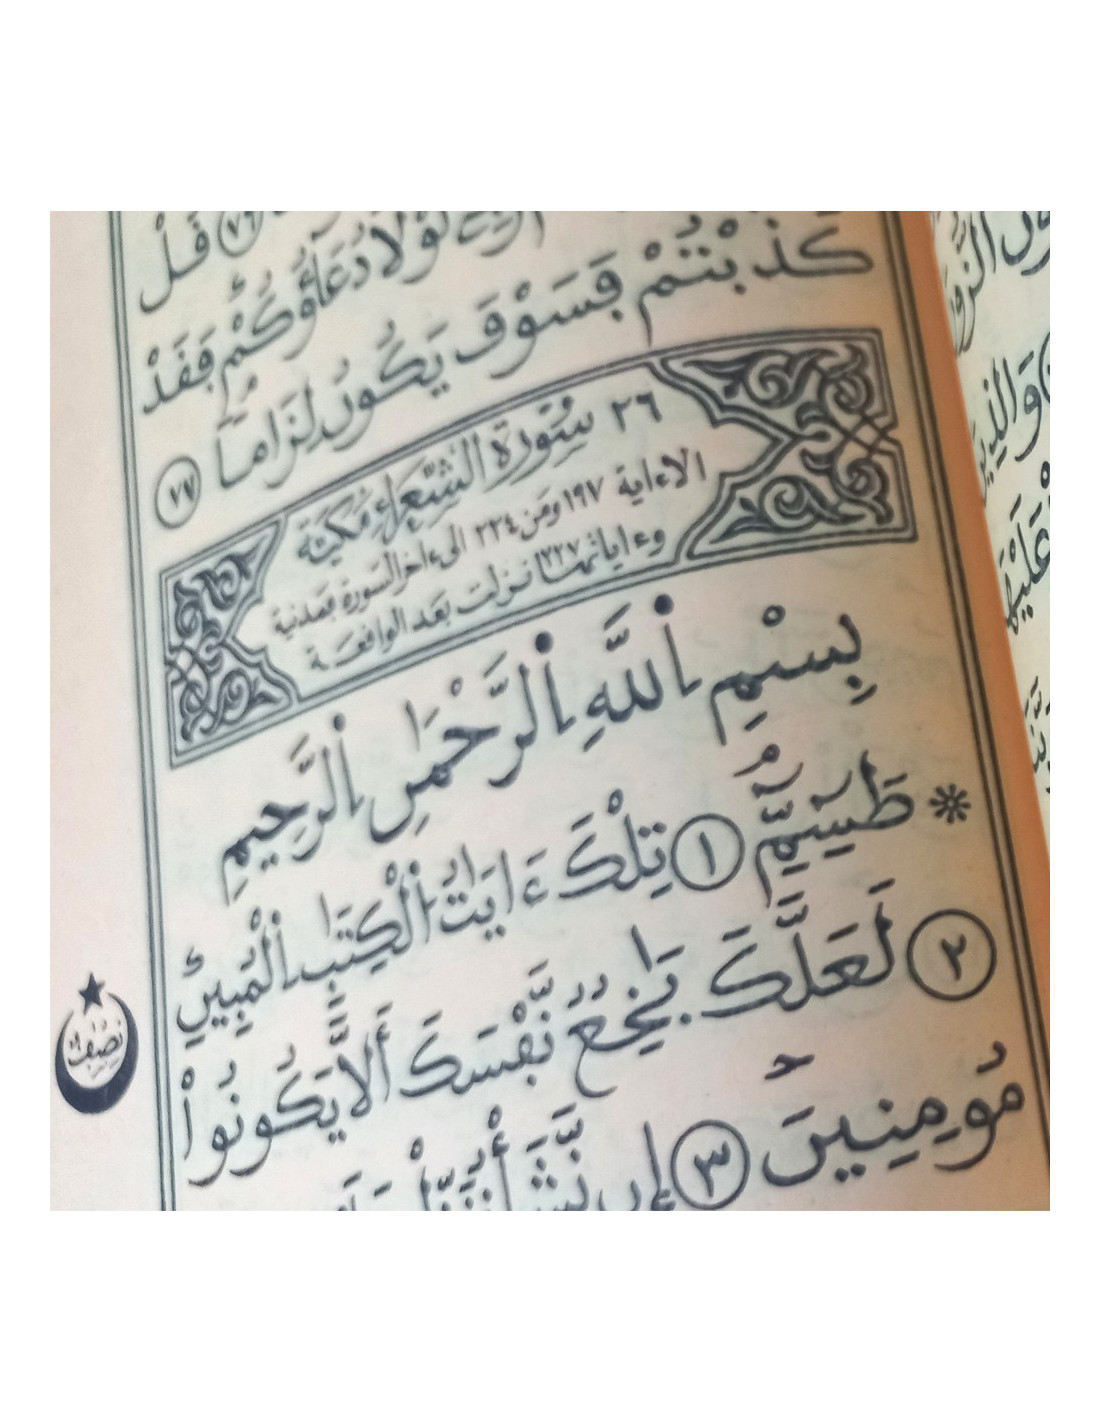 ٧٦ قُلْ
لَوْلَا دُعَآؤُكُمْ فَقَدْ
كَذَّبْتُمْ فَسَوْفَ يَكُونُ لِزَاماً ٧٧
٢٦ سُورَةُ الشُّعَرَاءِ مَكِّيَّة
الاءاية ١٩٧ ومن ٢٢٤ الى ءاخر السورة فمدنية
وءاياتها ٢٢٧ نزلت بعد الواقعة
بِسْمِ اِ۬للَّهِ اِ۬لرَّحْمَٰنِ اِ۬لرَّحِيمِ
۞ طَسِٓمِّٓۖ ١ تِلْكَ ءَايَٰتُ اُ۬لْكِتَٰبِ اِ۬لْمُبِينِۖ
٢ لَعَلَّكَ بَٰخِعٞ نَّفْسَكَ أَلَّا يَكُونُواْ
مُومِنِينَۖ ٣ إِن نَّشَأْ نُنَزِّلْ
نصف
وَالذِينَ